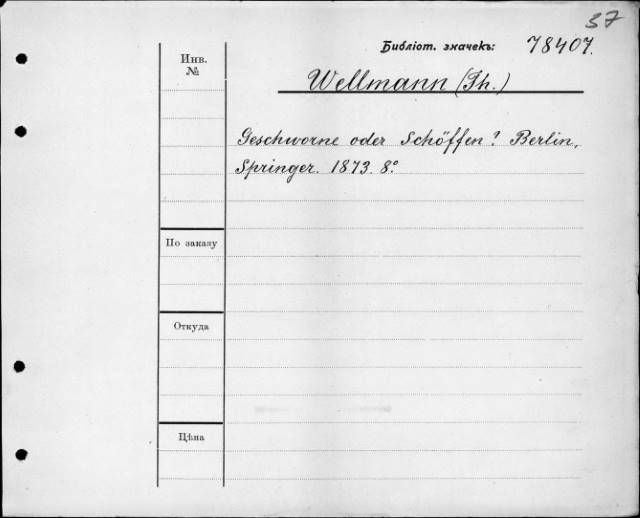 37
Библіот. значекъ: 78407.
Инв.
№
Wellmann (Th.)
Geschworne oder Schöffen? Berlin,
Springer. 1873. 8º
По заказу
Откуда
Цѣна